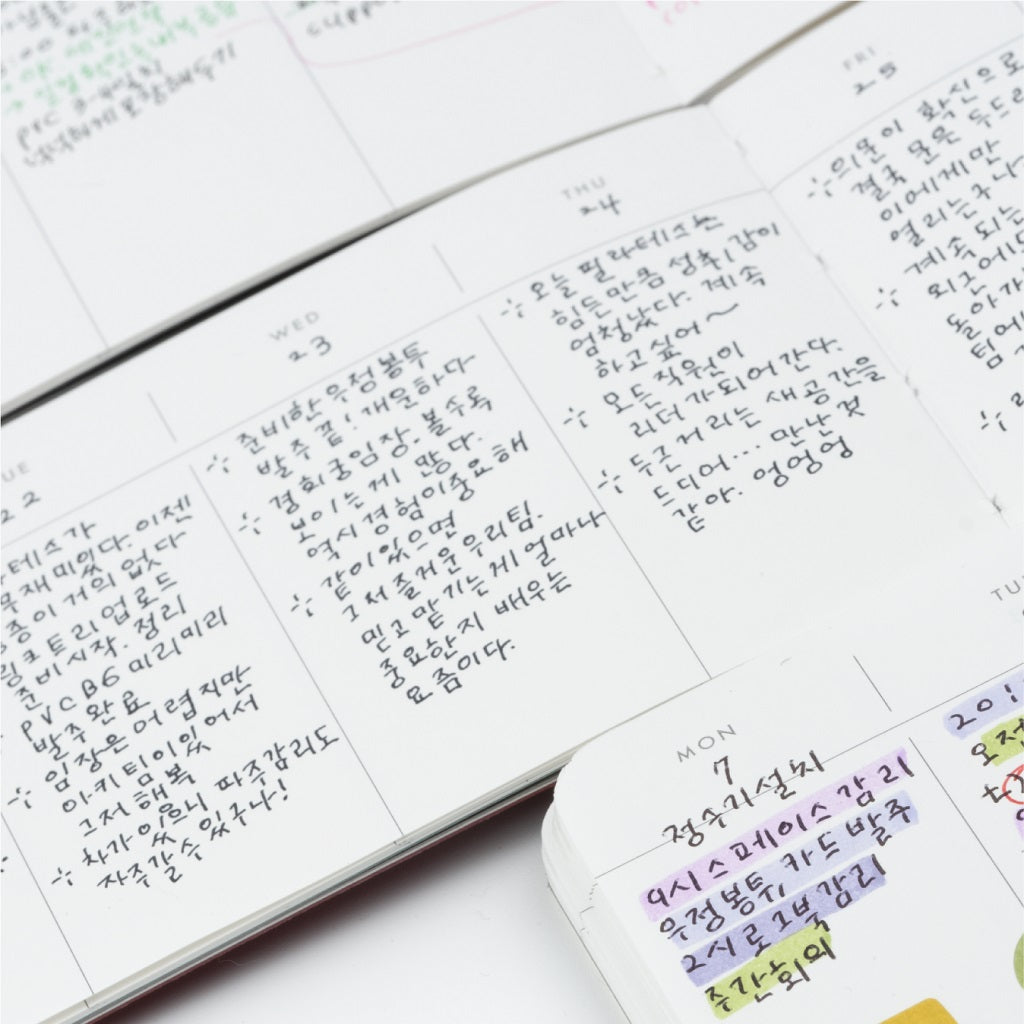 PVC 3-4일치
넉넉하게 포함해두기
TUE
22
테스가
재미있다. 이젠
증이 거의 없다
링크트리 업로드
준비시작. 정리
PVC B6 미리미리
발주완료
임장은 어렵지만
아키팀이 있어서
그저 행복
차가 있으니 파주감리도
자주갈 수 있구나!
WED
23
준비한 우정봉투
발주 끝! 개운하다
경희궁 임장. 볼수록
보이는게 많다.
역시 경험이 중요해
같이 있으면
그저 즐거운 우리팀.
믿고 맡기는게 얼마나
중요한지 배우는
요즘이다.
THU
24
오늘 필라테스는
힘든만큼 성취감이
엄청났다. 계속
하고싶어~
모든 직원이
리더가 되어간다.
두근거리는 새공간을
드디어... 만난 것
같아. 엉엉엉
FRI
25
의문이 확신으로
결국 문은 두드리
이에게만
열리는구나
계속되는
외근에도
돌아가
팀에
MON
7
정수기 설치
9시 스페이스 감리
우정봉투, 카드 발주
2시 로그북 감리
주간회의